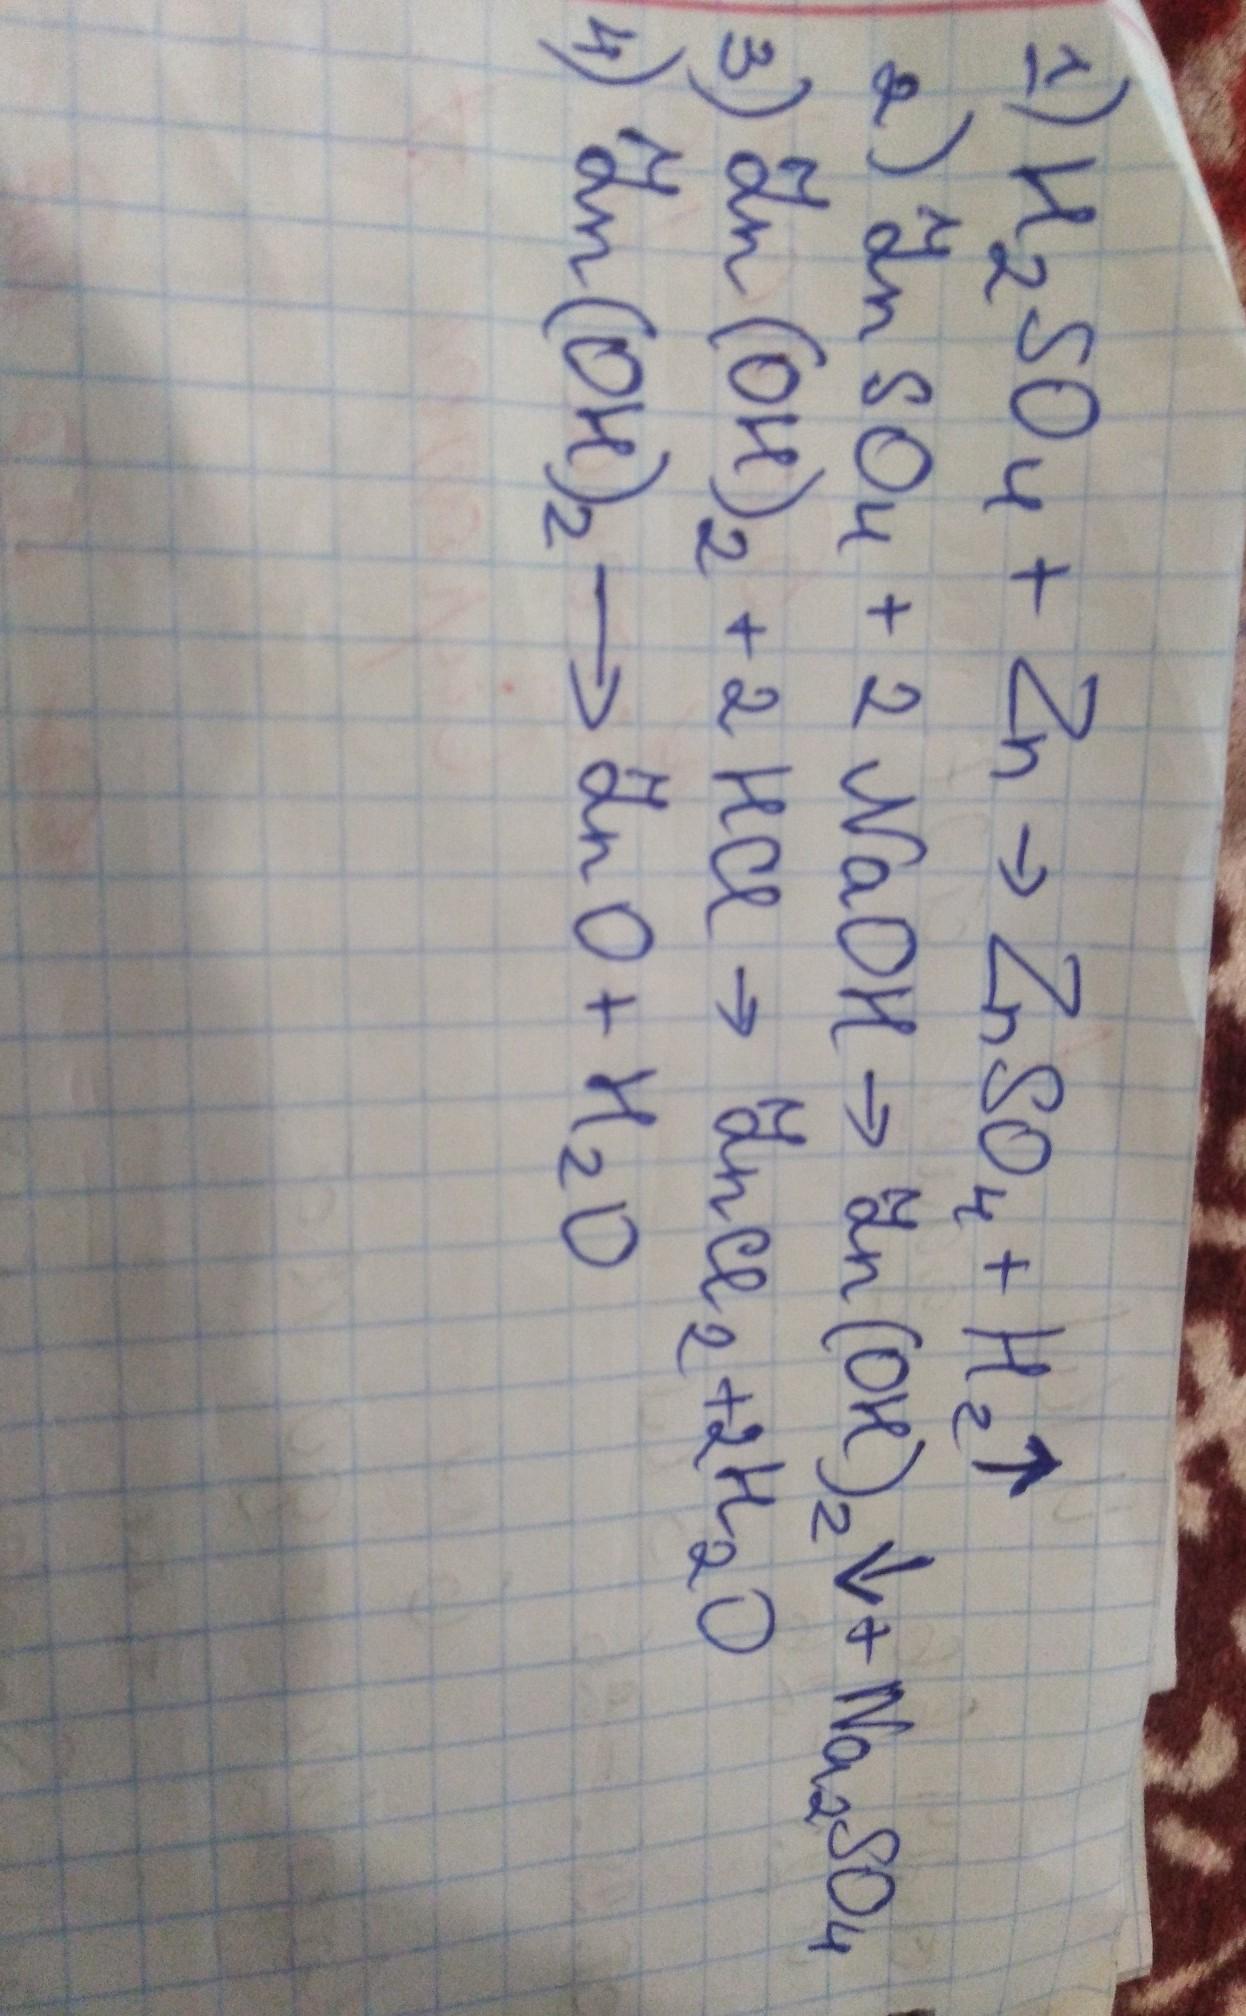 1) H₂SO₄ + Zn → ZnSO₄ + H₂↑
2) ZnSO₄ + 2NaOH → Zn(OH)₂↓ + Na₂SO₄
3) Zn(OH)₂ + 2HCl → ZnCl₂ + 2H₂O
4) Zn(OH)₂ → ZnO + H₂O